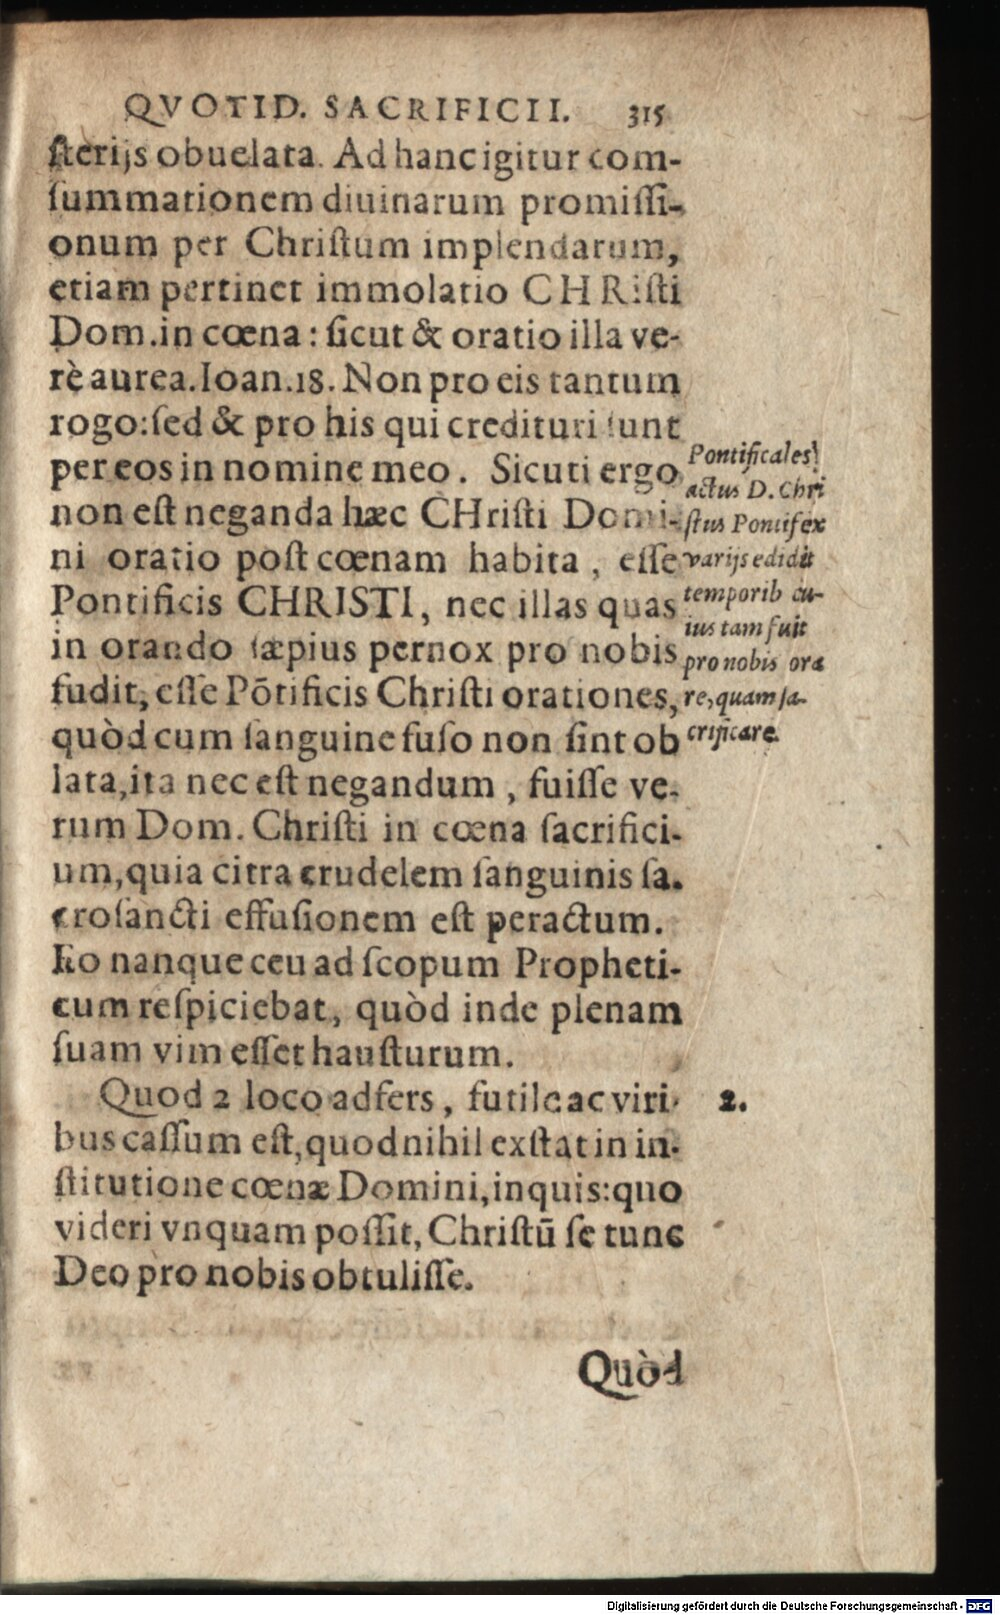 QVOTID. SACRIFICII. 315
ſterijs obuelata. Ad hanc igitur com-
ſummationem diuinarum promiſſi-
onum per Chriſtum implendarum,
etiam pertinet immolatio CHRiſti
Dom. in cœna: ſicut & oratio illa ve-
rè aurea. Ioan. 18. Non pro eis tantum
rogo: ſed & pro his qui credituri ſunt
per eos in nomine meo. Sicuti ergo
non eſt neganda hæc CHriſti Domi-
ni oratio poſt cœnam habita, eſſe
Pontificis CHRISTI, nec illas quas
in orando ſæpius pernox pro nobis
fudit, eſſe Põtificis Chriſti orationes,
quòd cum ſanguine fuſo non ſint ob
lata, ita nec eſt negandum, fuiſſe ve-
rum Dom. Chriſti in cœna ſacrifici-
um, quia citra crudelem ſanguinis ſa-
croſancti effuſionem eſt peractum.
Eo nanque ceu ad ſcopum Propheti-
cum reſpiciebat, quòd inde plenam
ſuam vim eſſet hauſturum.
Quod 2 loco adfers, futile ac viri-
bus caſſum eſt, quod nihil exſtat in in-
ſtitutione cœnæ Domini, inquis: quo
videri vnquam poſſit, Chriſtũ ſe tunc
Deo pro nobis obtuliſſe.
Quòd
Pontificales
actus D. Chri
ſtus Pontifex
varijs edidit
temporib cu-
ius tam fuit
pro nobis ora
re, quam ſa-
crificare.
2.
Digitalisierung gefördert durch die Deutsche Forschungsgemeinschaft - DFG